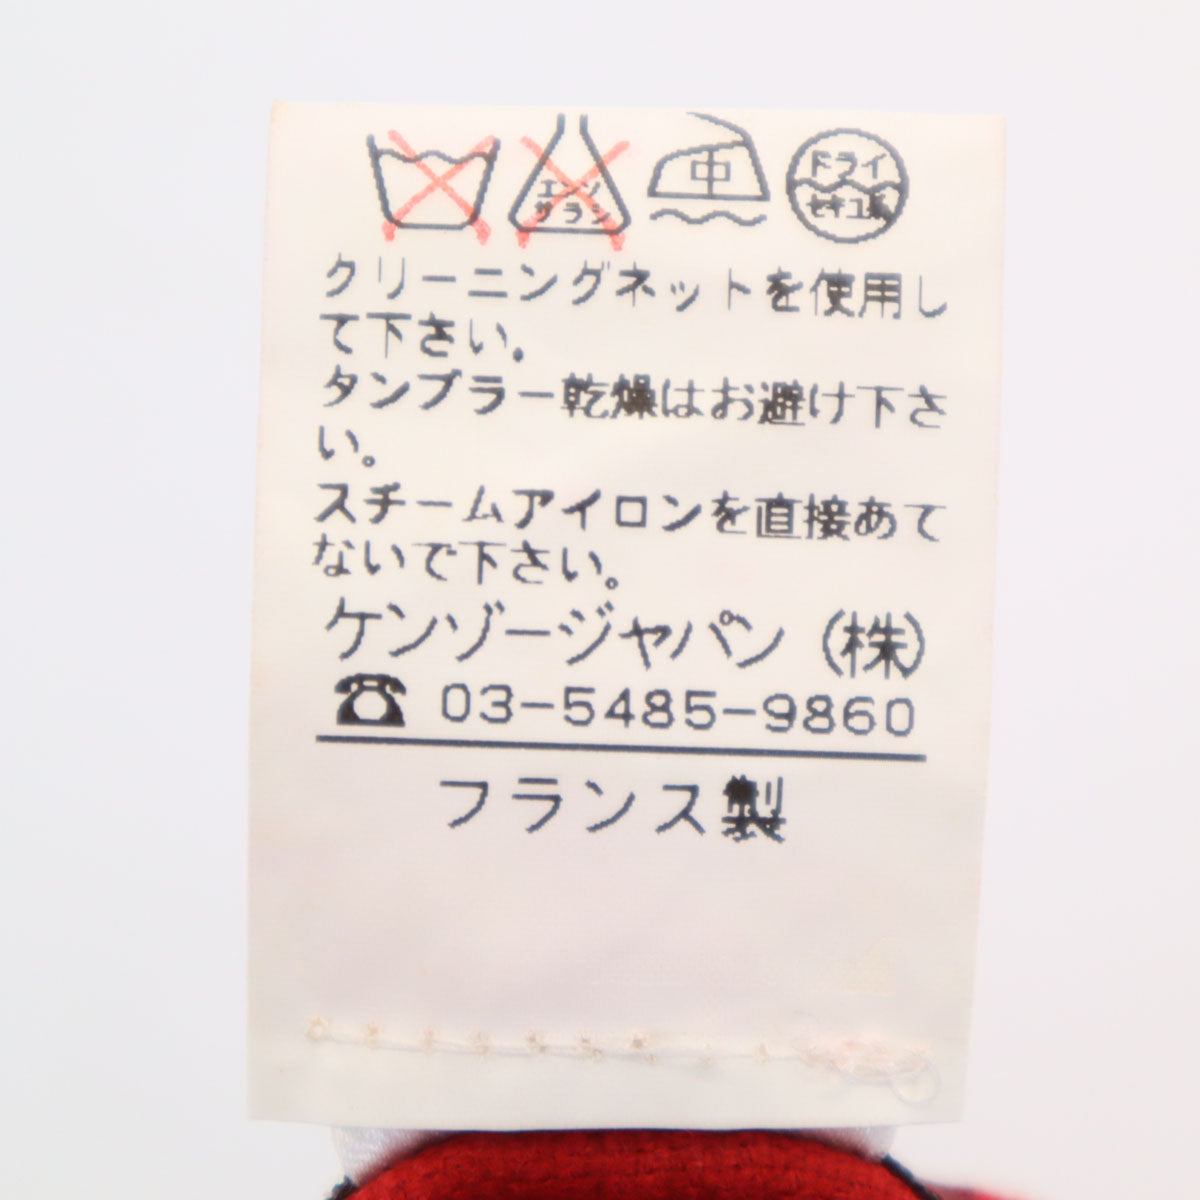 エンソ
サラシ
中
ドライ
セキユ系
クリーニングネットを使用し
て下さい。
タンブラー乾燥はお避け下さ
い。
スチームアイロンを直接あて
ないで下さい。
ケンゾージャパン（株）
☎ 03-5485-9860
フランス製